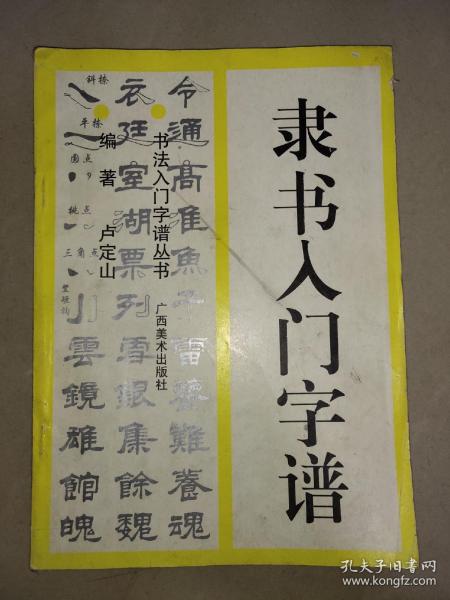 隶书入门字谱
书法入门字谱丛书
广西美术出版社
编著
卢定山
斜捺
平捺
圆点
挑点
三角点
竖短钩
令通高淮鱼
衣廷室湖票列
雲鏡雄館魄
雪銀集餘魏
難養魂
孔夫子旧书网
www.kongfz.com